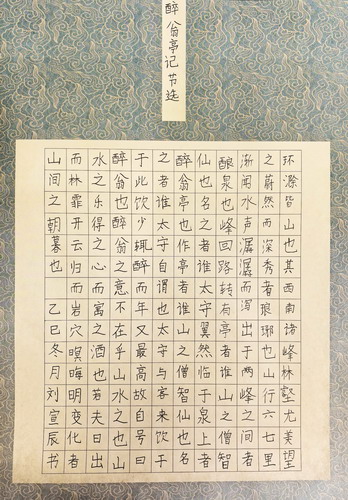 醉翁亭记 节选
环滁皆山也其西南诸峰林壑尤美望
之蔚然而深秀者琅琊也山行六七里
渐闻水声潺潺而泻出于两峰之间者
酿泉也峰回路转有亭者谁山之僧智
仙也名之者谁太守翼然临于泉上者
醉翁亭也作亭者谁山之僧智仙也名
之者谁太守自谓也太守与客来饮于
于此饮少辄醉而年又最高故自号曰
醉翁也醉翁之意不在乎山水之也山
水之乐得之心而寓之酒也若夫日出
而林霏开云归而岩穴暝晦明变化者
山间之朝暮也 乙巳冬月刘宣辰书